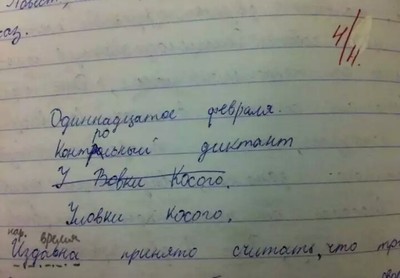 Повест,
каз.
4/4.
Одиннадцатое февраля.
Контрольный диктант
У Вовки Косого.
Уловки Косого.
нар. время
Издавна принято считать, что